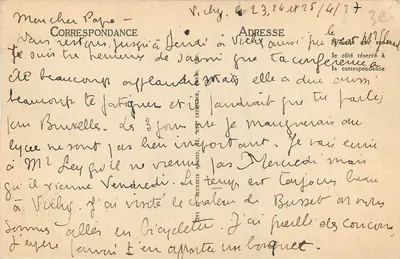 Mon cher Papa - Vichy, le 23, 24 et 25/4/27
CORRESPONDANCE ADRESSE
Nous restons jusqu'à Jeudi à Vichy aussi
le côté réservé à
la correspondance
Je suis très heureux de savoir que ta conférence a
été beaucoup applaudie mais elle a due aussi
beaucoup te fatiguer et il faudrait que tu partes
pour Bruxelles. Les 3 jours que je manquerais du
lycée ne sont pas bien important. Je vais écrire
à Mr Ley qu'il ne vienne pas Mercredi mais
qu'il vienne Vendredi. Le temps est toujours beau
à Vichy. J'ai visité le château de Busset où nous
sommes allés en bicyclette. J'ai cueilli des coucous,
j'espère pouvoir t'en apporter un bouquet.